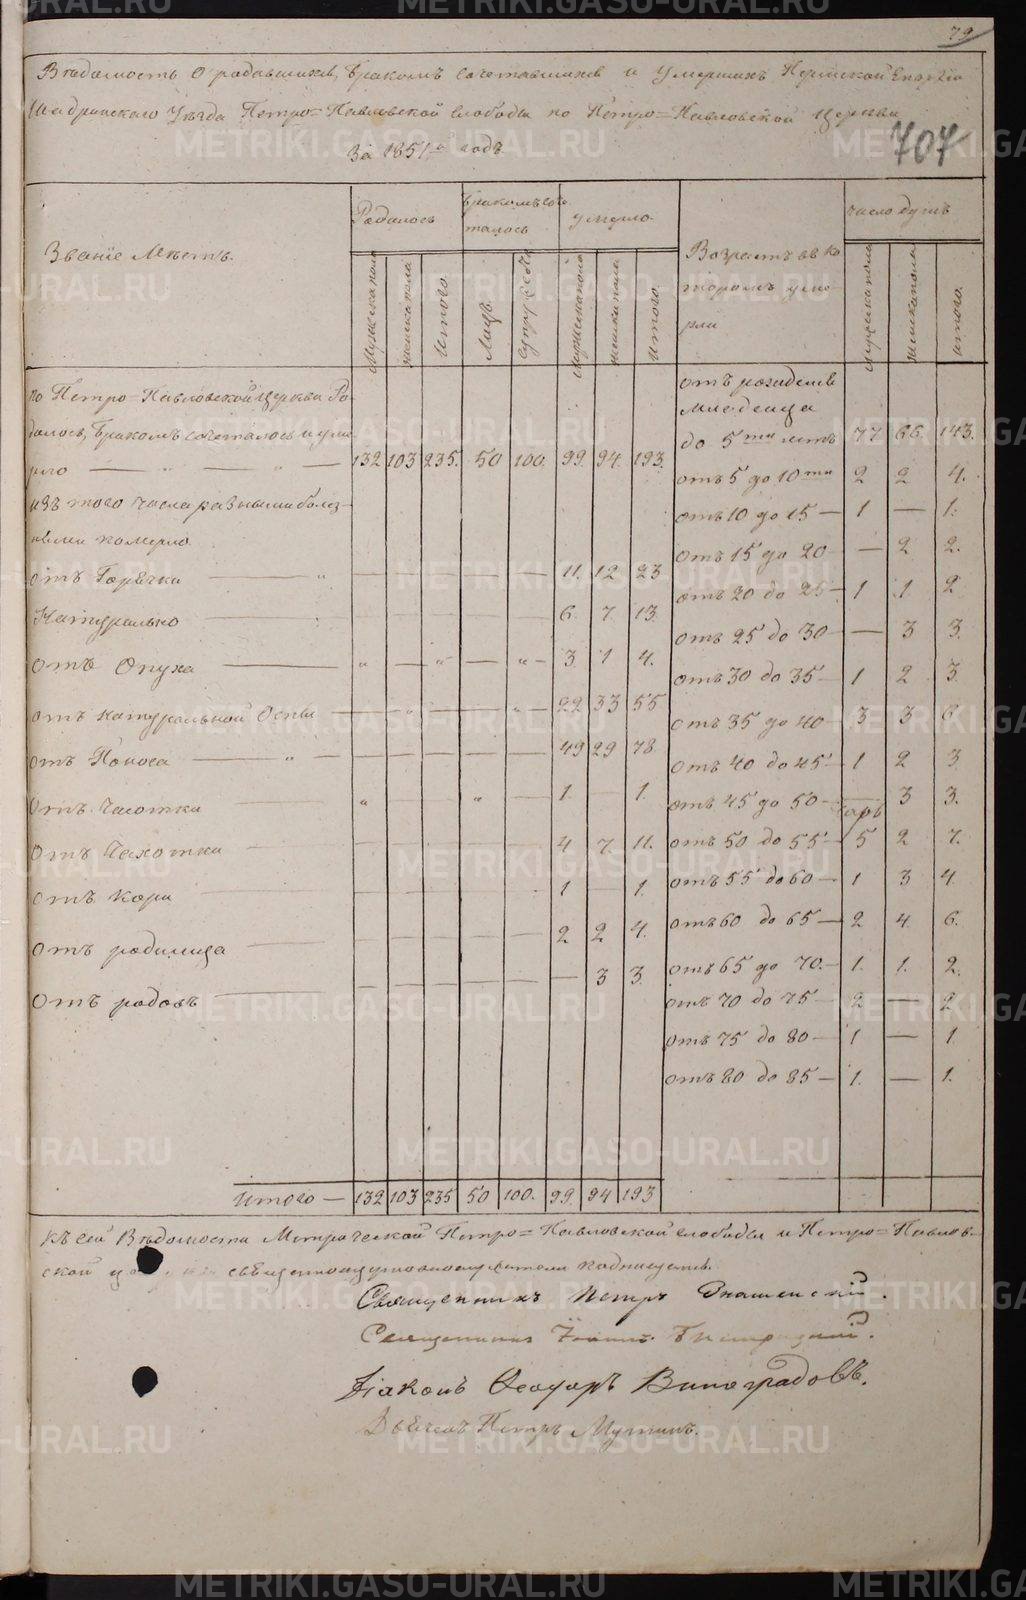 79
Вѣдомость о родившихся, бракомъ сочетавшихся и умершихъ Пермской Епархіи
Шадринскаго Уѣзда Петро=Павловской слободы по Петро=Павловской церкви
За 1851й годъ
707
Званіе Мѣстъ.
Родилось
Бракомъ соче-
талось
умерло
Возрастъ въ ко
торомъ уме-
рли
число душъ
Мужеска пола
женска пола
Итого.
Лицъ.
Супружествъ
мужеска пола
женска пола
Итого
мужеска пола
женска пола
итого.
по Петро=Павловской церкви Ро-
дилось, бракомъ сочеталось и уме-
рло — „ — „ — 132 103 235. 50 100. 99. 94. 193.
изъ того числа разными болез-
нями померло
отъ Горячки — „ — 11. 12 23
Натурально — 6. 7. 13.
отъ Опуха — „ — „ — „ — 3 1 4.
отъ натуральной Оспы — „ — „ — 22 33 55
отъ Поноса — „ — 49 29 78.
отъ Чахотки — „ „ — 1. — 1.
отъ кори — 1 — 1.
отъ родимца — 2 2 4.
отъ родовъ — — 3 3.
4 7. 11.
отъ рожденія
младенца
до 5ти лѣтъ 77 66. 143.
отъ 5 до 10ти 2 2 4.
отъ 10 до 15 — 1 — 1.
отъ 15 до 20 — 2 2.
отъ 20 до 25 — 1 1 2
отъ 25 до 30 — 3 3.
отъ 30 до 35 — 1 2 3.
отъ 35 до 40 — 3 3 6.
отъ 40 до 45 — 1 2 3
отъ 45 до 50 — 3 3.
отъ 50 до 55 — 5 2 7.
отъ 55 до 60 — 1 3 4
отъ 60 до 65 — 2 4 6.
отъ 65 до 70. — 1. 1. 2.
отъ 70 до 75 — 2 — 2
отъ 75 до 80 — 1 — 1
отъ 80 до 85 — 1. — 1.
Итого — 132 103 235 50 100. 99. 94 193
Къ сей Вѣдомости Метрической Петро=Павловской слободы и Петро=Павлов-
ской священноцерковнослужители подписуемъ.
Священникъ Петръ Знаменскій.
Священникъ
Діаконъ Ѳеодоръ Виноградовъ.
Дьячекъ Петръ
METRIKI.GASO-URAL.RU